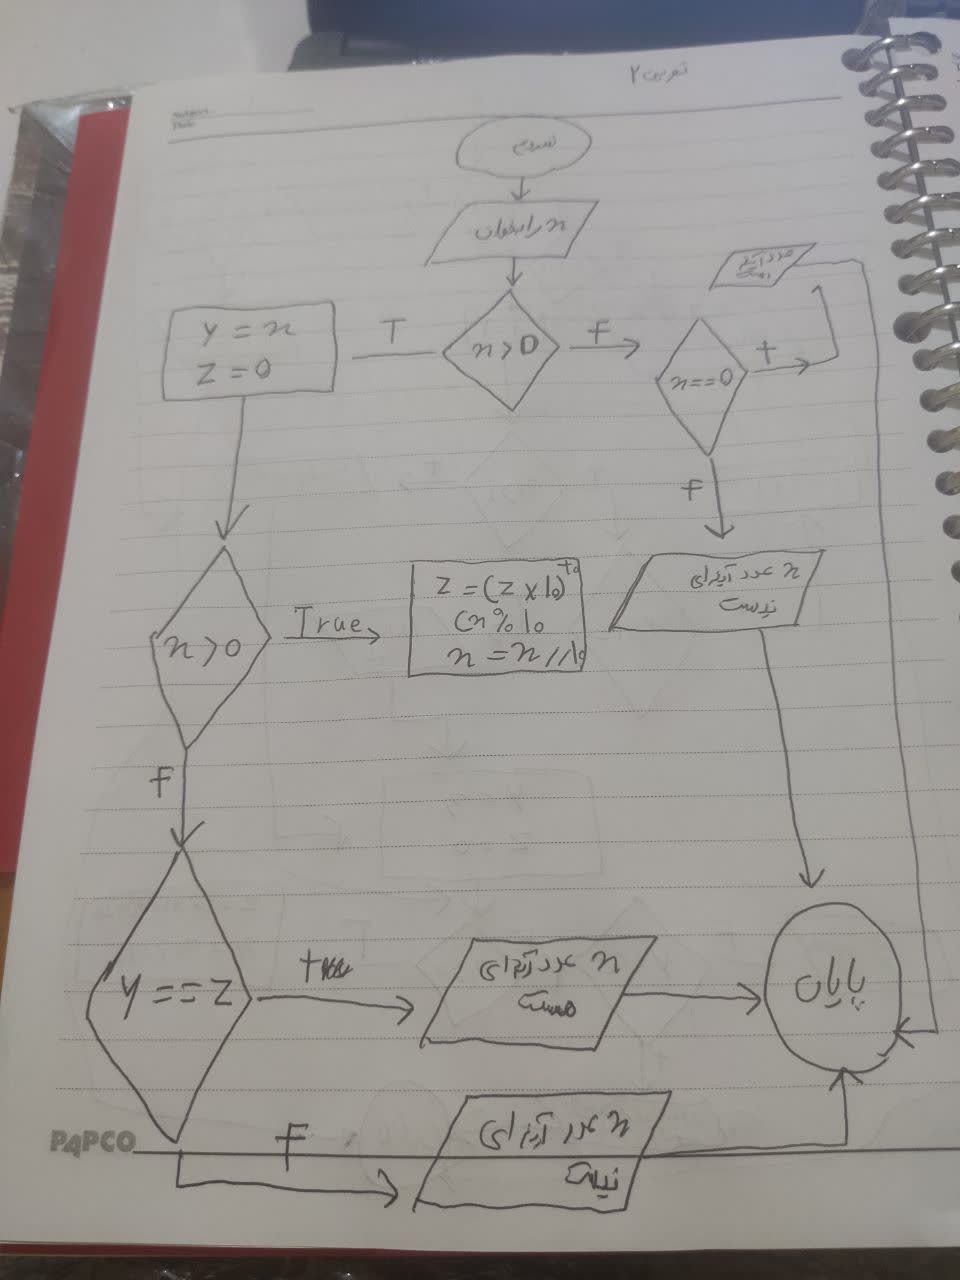 تمرین ۲
شروع
n را بخوان
n > 0
T
F
y = n
z = 0
n == 0
t
عدد آینه‌ای است
F
n عدد آینه‌ای
نیست
n > 0
True
z = (z × 10) +
(n % 10
n = n // 10
F
y == z
true
n عدد آینه‌ای
هست
پایان
F
n عدد آینه‌ای
نیست
PAPCO